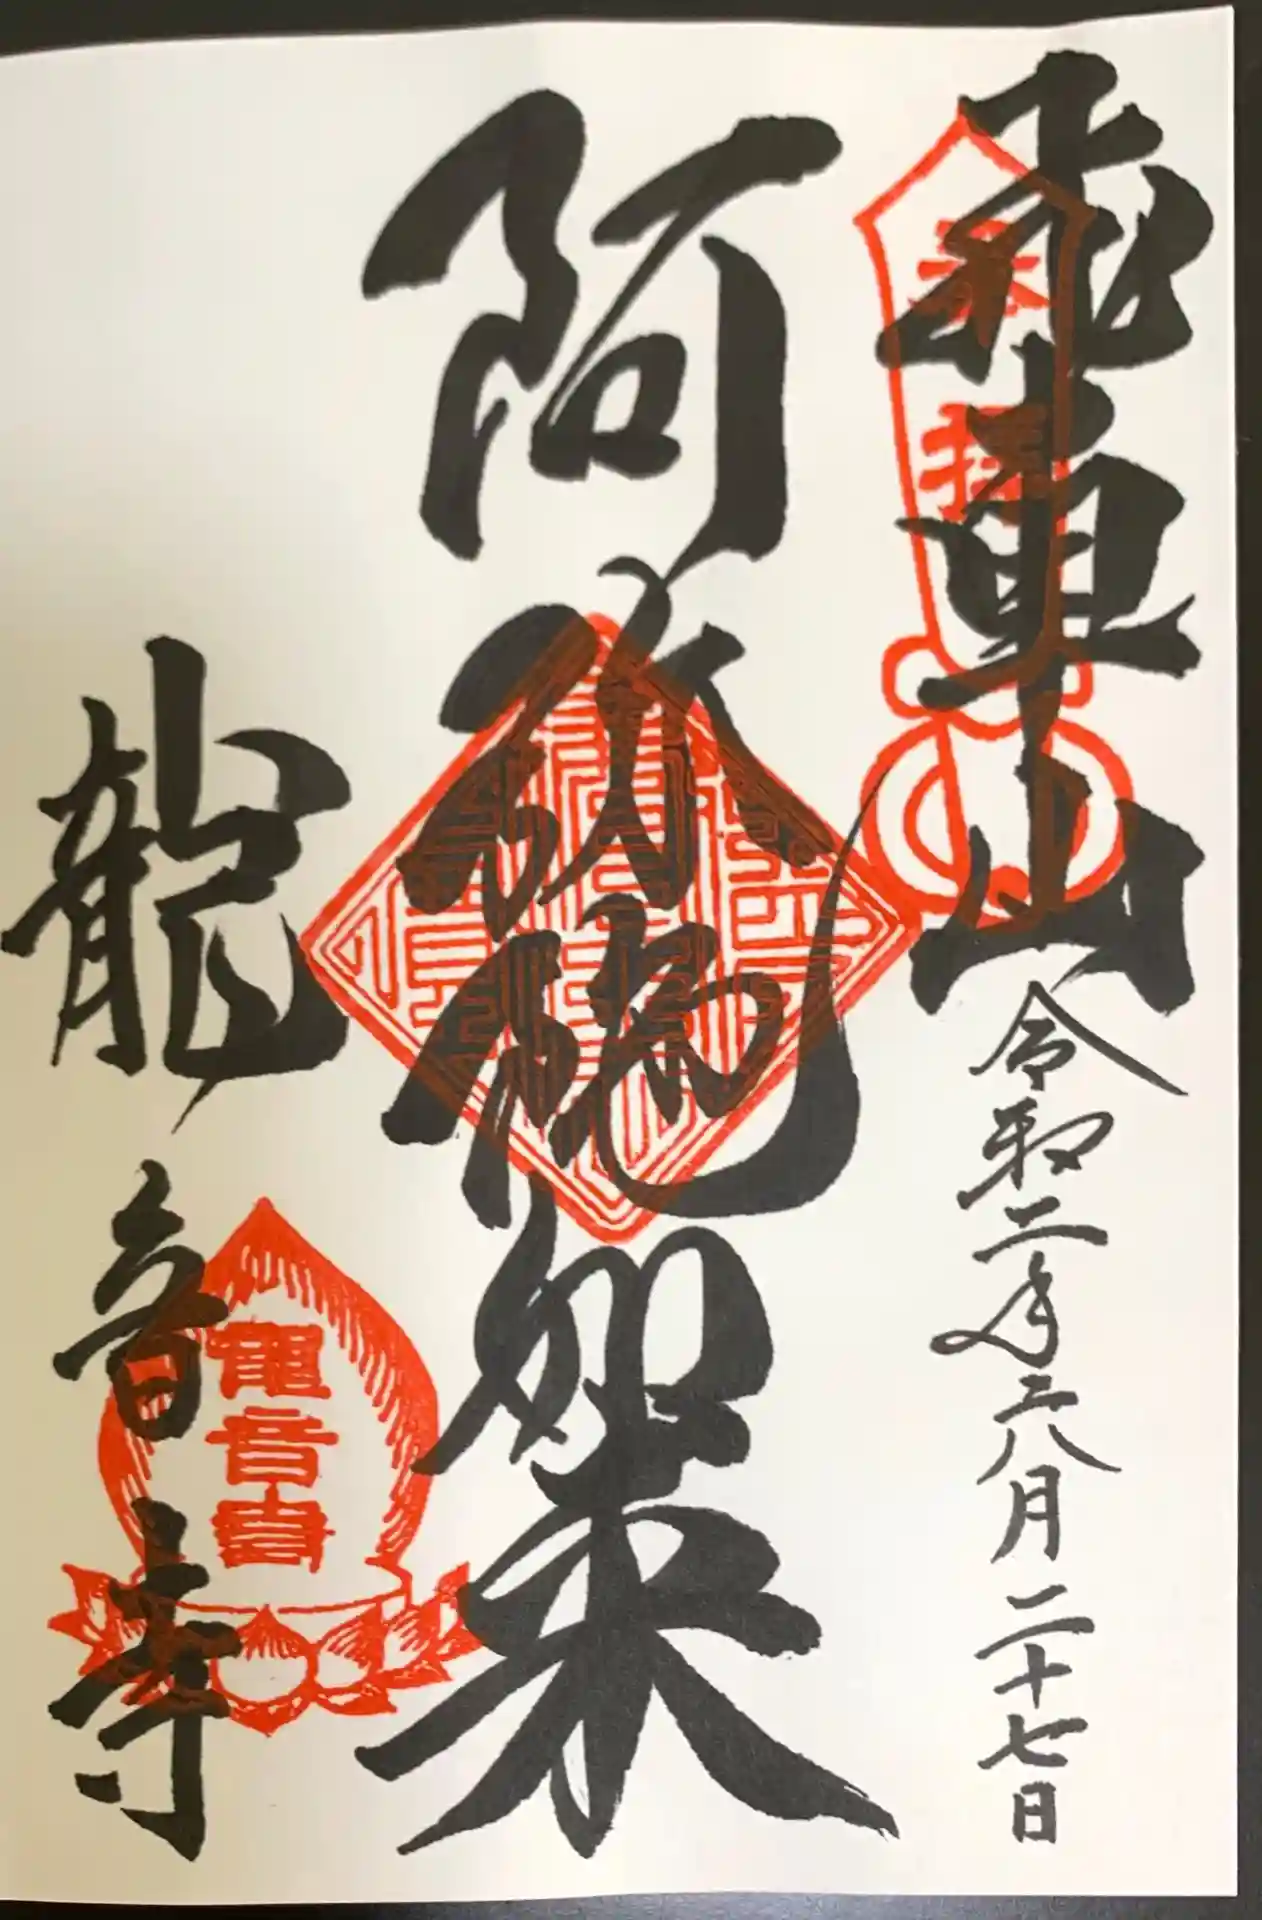 飛車山
奉拝
令和二年八月二十七日
阿弥陀如来
龍音寺
龍音寺